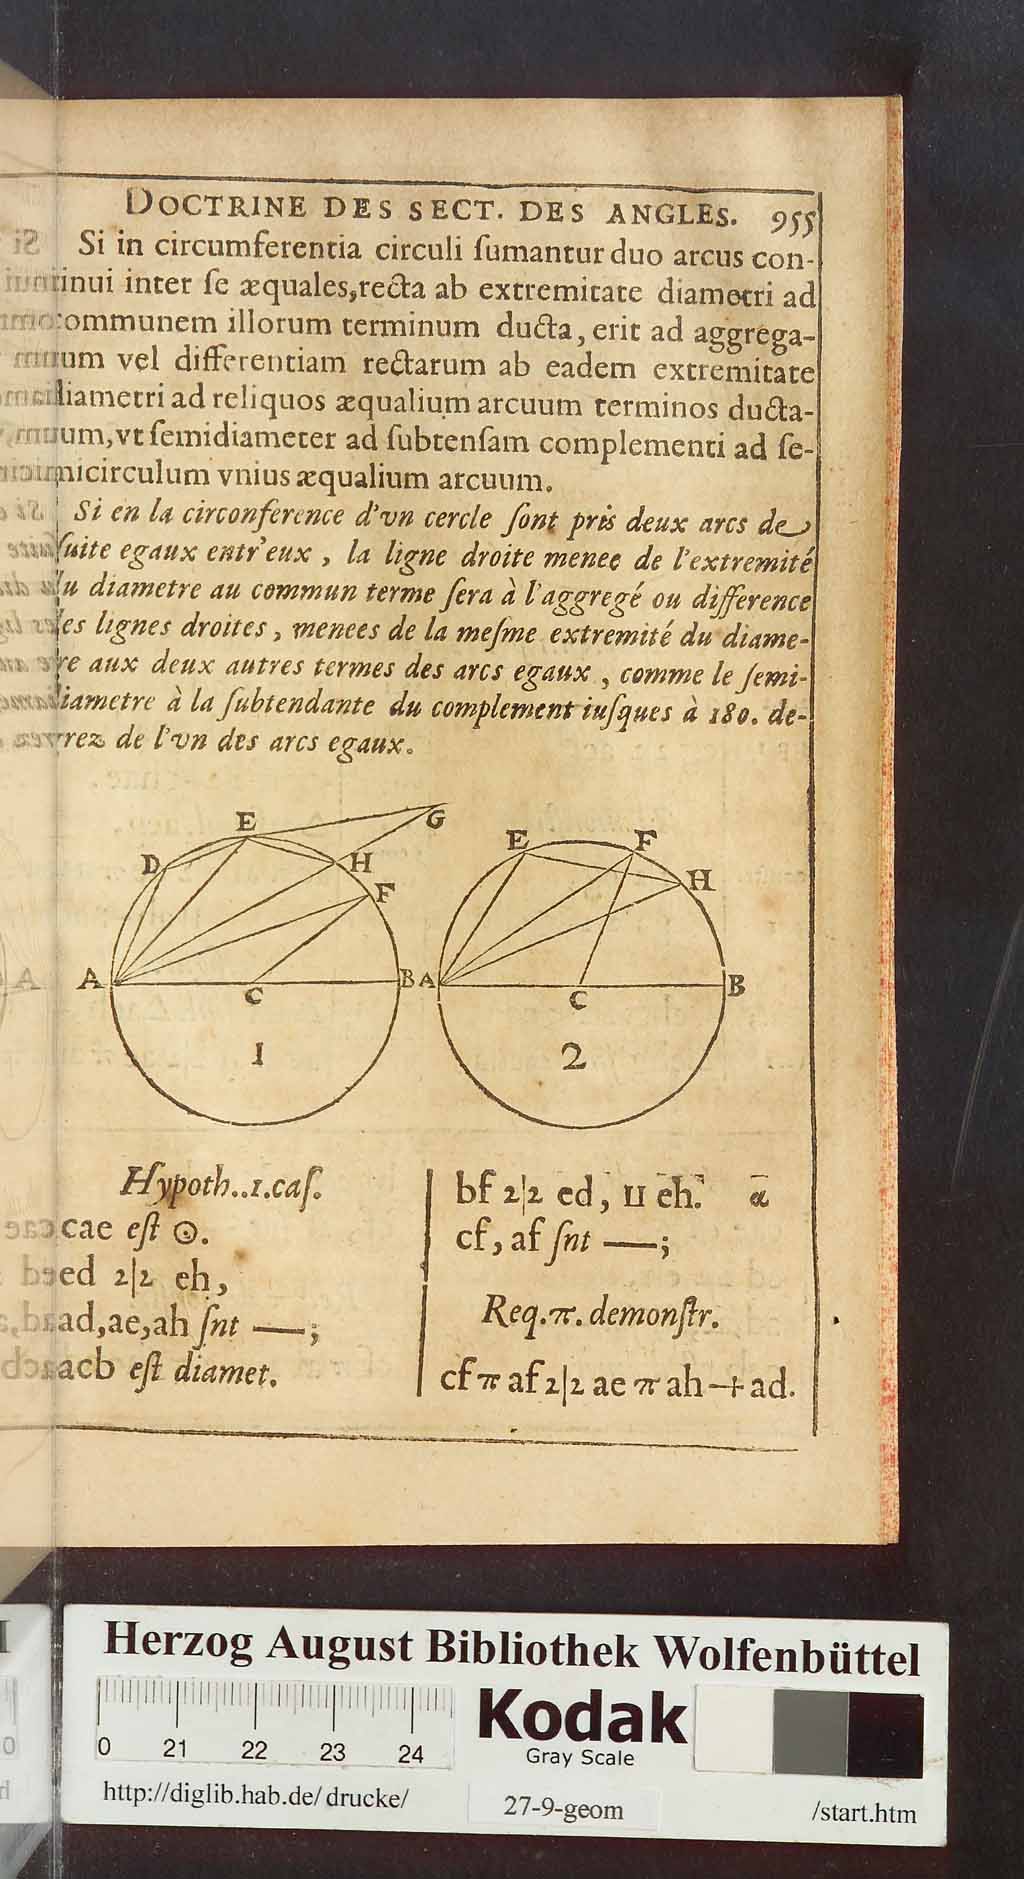 DOCTRINE DES SECT. DES ANGLES. 955
Si in circumferentia circuli ſumantur duo arcus con-
tinui inter ſe æquales, recta ab extremitate diametri ad
communem illorum terminum ducta, erit ad aggrega-
tum vel differentiam rectarum ab eadem extremitate
diametri ad reliquos æqualium arcuum terminos ducta-
rum, vt ſemidiameter ad ſubtenſam complementi ad ſe-
micirculum vnius æqualium arcuum.
Si en la circonference d'vn cercle ſont pris deux arcs de
ſuite egaux entr'eux, la ligne droite menee de l'extremité
du diametre au commun terme ſera à l'aggregé ou difference
des lignes droites, menees de la meſme extremité du diame-
tre aux deux autres termes des arcs egaux, comme le ſemi-
diametre à la ſubtendante du complement iuſques à 180. de-
grez de l'vn des arcs egaux.
E G E F
D H H
F
A C B A C B
1 2
Hypoth..1.caſ.
cae eſt ⊙.
ed 2|2 eh,
ad, ae, ah ſnt —;
acb eſt diamet.
bf 2|2 ed, ⊔ eh. α
cf, af ſnt —;
Req. π. demonſtr.
cf π af 2|2 ae π ah + ad.
Herzog August Bibliothek Wolfenbüttel
0 21 22 23 24
Kodak
Gray Scale
http://diglib.hab.de/drucke/ 27-9-geom /start.htm